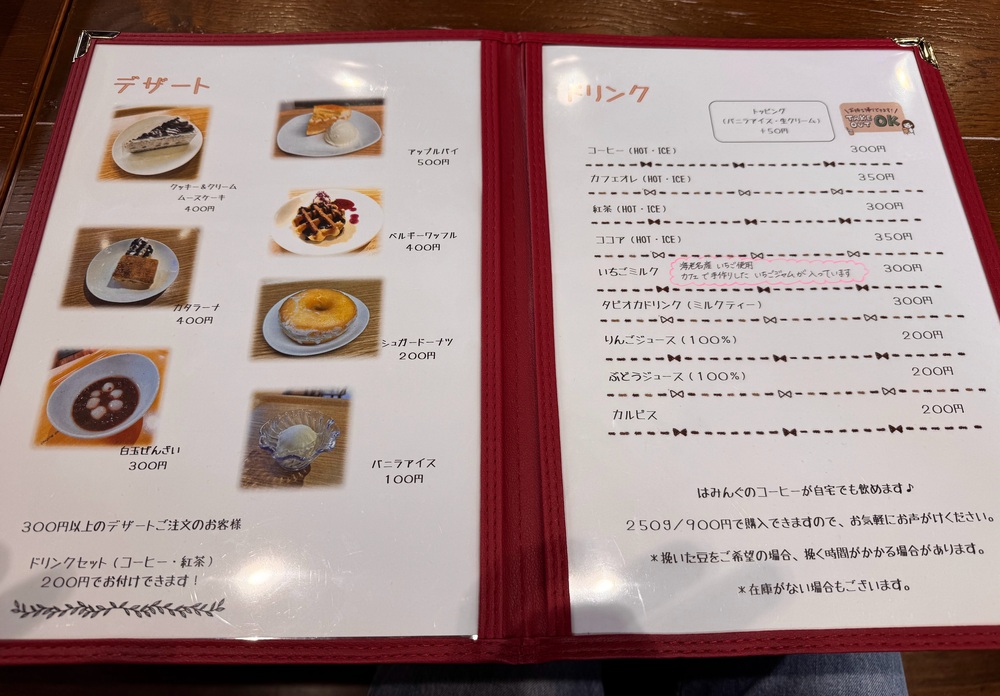 デザート
クッキー&クリーム
ムースケーキ
400円
アップルパイ
500円
ベルギーワッフル
400円
カタラーナ
400円
シュガードーナツ
200円
白玉ぜんざい
300円
バニラアイス
100円
300円以上のデザートご注文のお客様
ドリンクセット(コーヒー・紅茶)
200円でお付けできます!
ドリンク
トッピング
(バニラアイス・生クリーム)
+50円
お持ち帰りできます!
TAKE OUT OK
コーヒー(HOT・ICE) 300円
カフェオレ(HOT・ICE) 350円
紅茶(HOT・ICE) 300円
ココア(HOT・ICE) 350円
いちごミルク 300円
海老名産 いちご使用
カフェで手作りした いちごジャムが入っています
タピオカドリンク(ミルクティー) 300円
りんごジュース(100%) 200円
ぶどうジュース(100%) 200円
カルピス 200円
はみんぐのコーヒーが自宅でも飲めます♪
250g/900円で購入できますので、お気軽にお声がけください。
*挽いた豆をご希望の場合、挽く時間がかかる場合があります。
*在庫がない場合もございます。